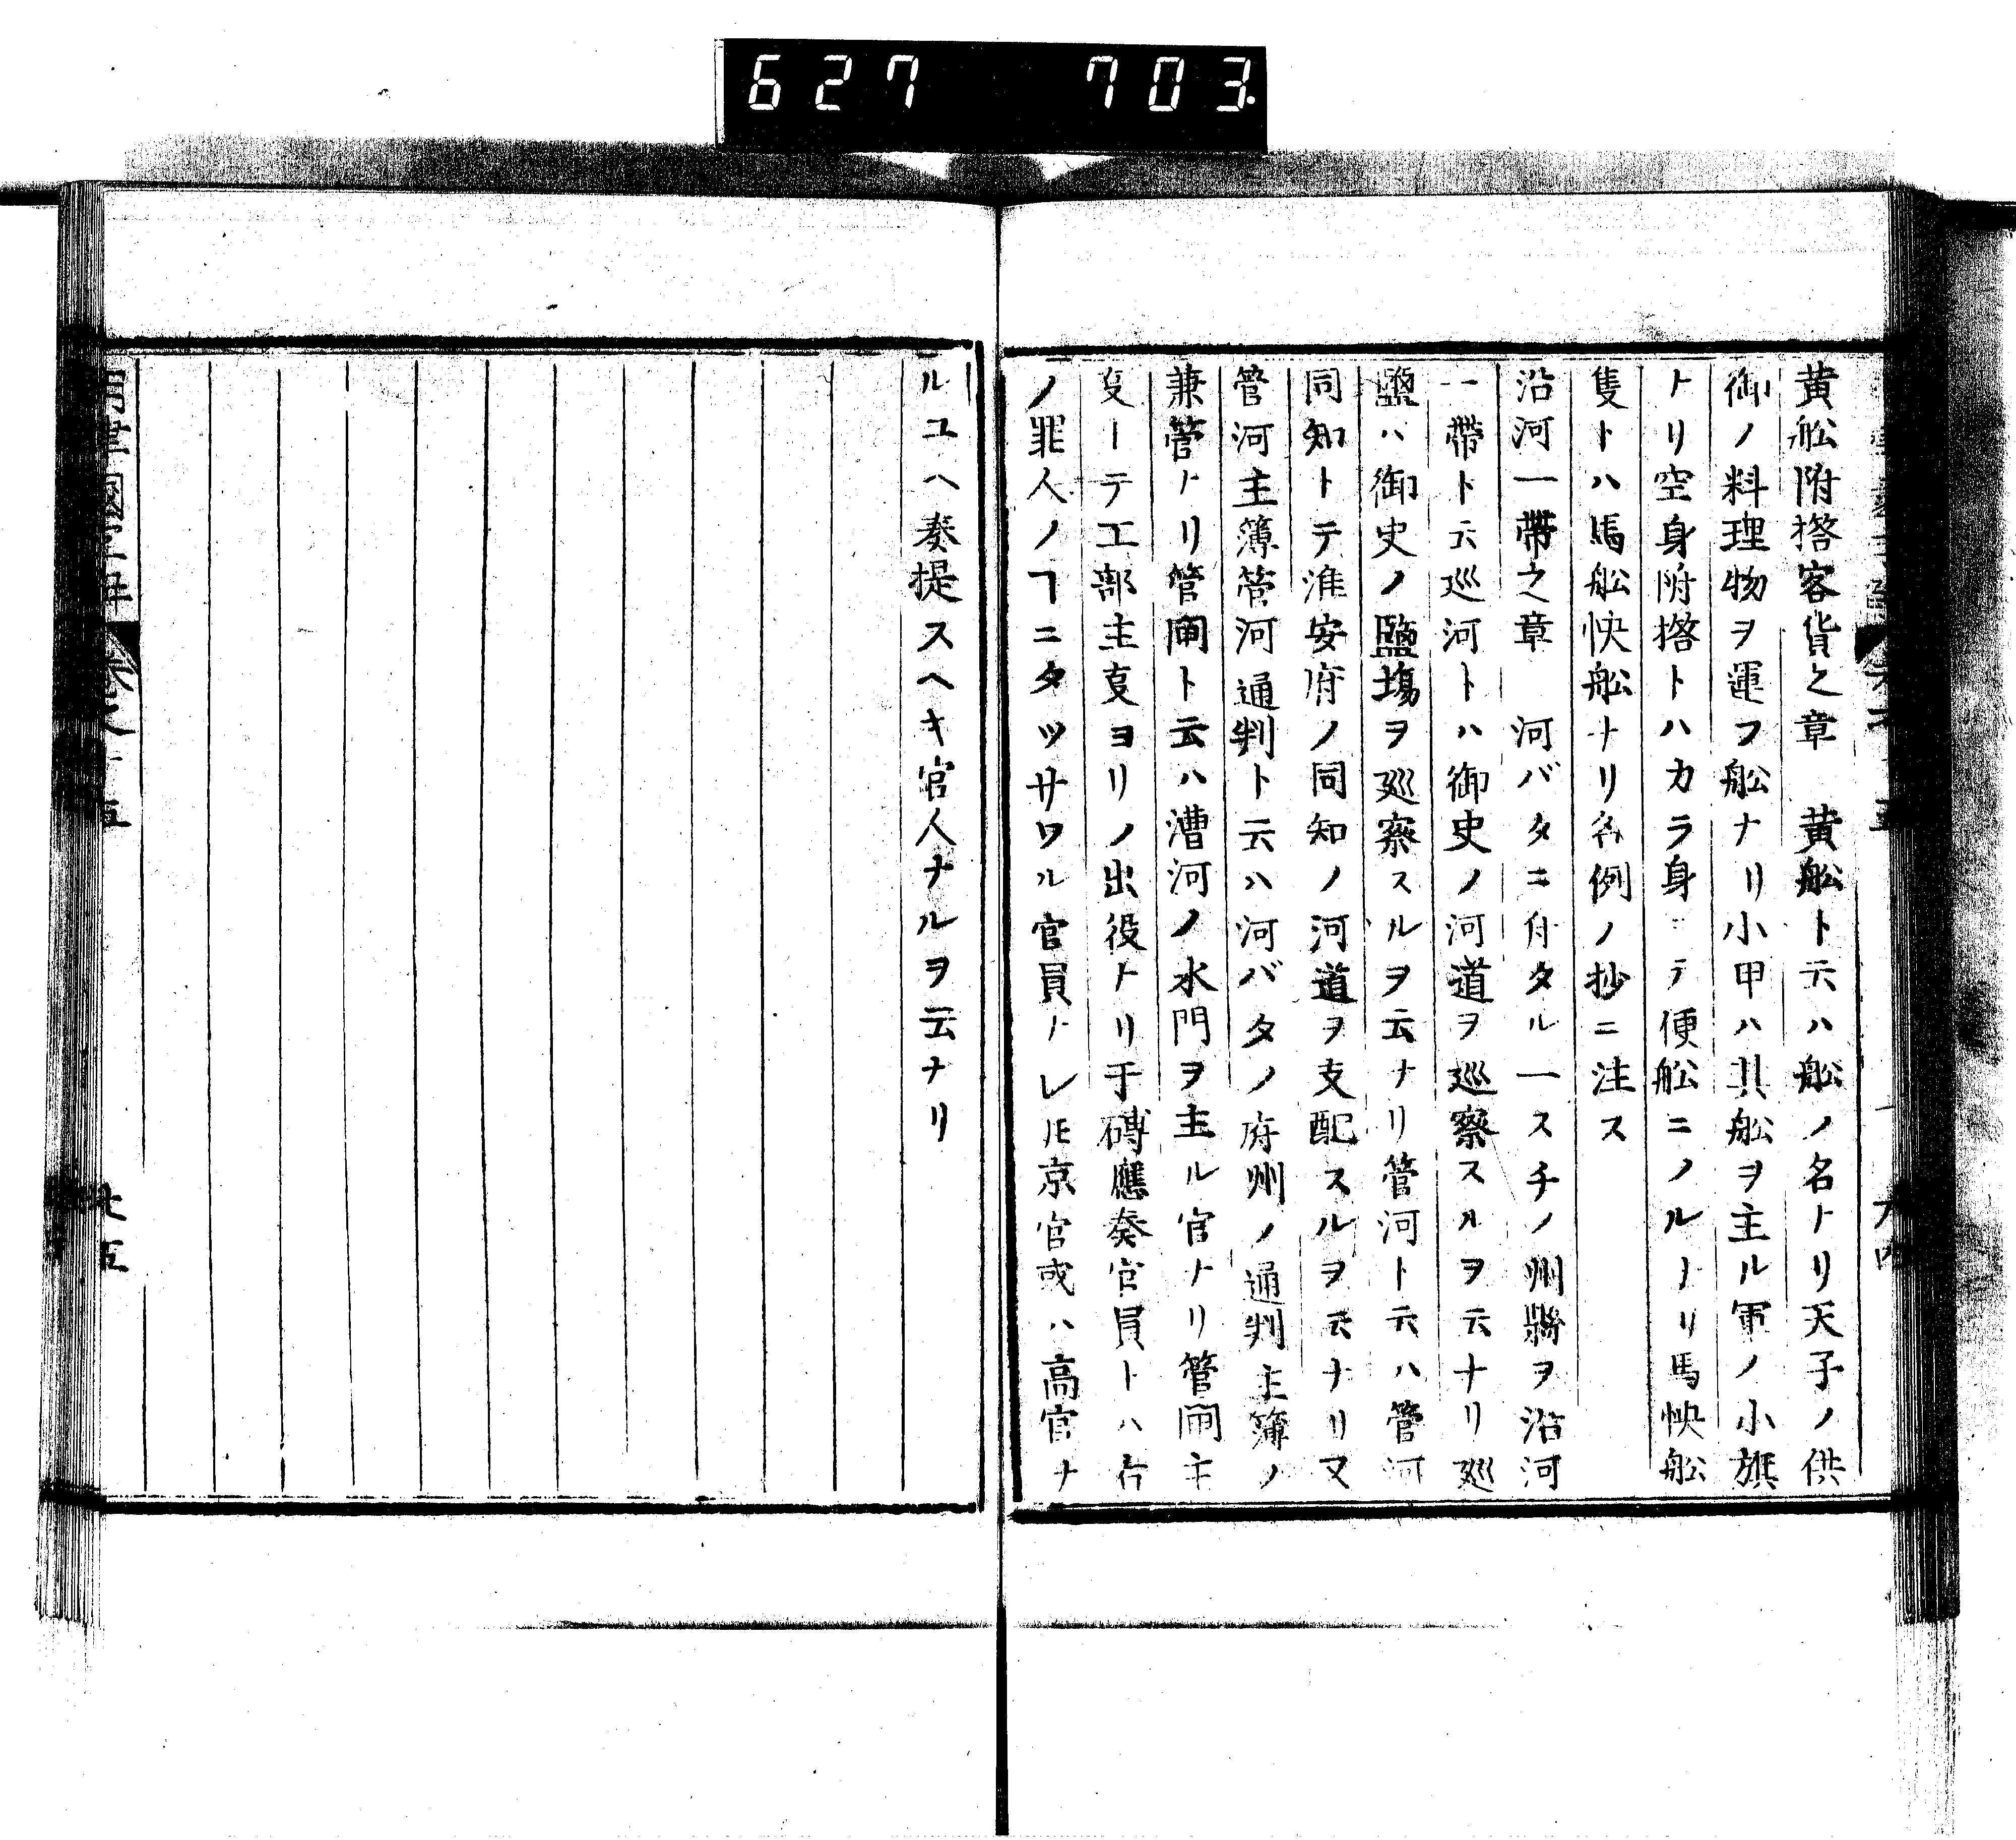 627 703
黄舩附搭客貨之章　黄舩ト云ハ舩ノ名ナリ天子ノ供
御ノ料理物ヲ運フ舩ナリ小甲ハ其舩ヲ主ル軍ノ小旗
ナリ空身附搭トハカラ身ニテ便舩ニノルナリ馬怏舩
隻トハ馬舩怏舩ナリ名例ノ抄ニ注ス
沿河一帶之章　河バタニ舟タル一スチノ州縣ヲ沿河
一帶ト云巡河トハ御史ノ河道ヲ巡察スルヲ云ナリ巡
鹽ハ御史ノ鹽塲ヲ巡察スルヲ云ナリ管河ト云ハ管河
同知トテ淮安府ノ同知ノ河道ヲ支配スルヲ云ナリ又
管河主薄管河通判ト云ハ河バタノ府州ノ通判主簿ノ
兼管ナリ管閘ト云ハ漕河ノ水門ヲ主ル官ナリ管閘主
㕝ーテ工部主㕝ヨリノ出役ナリ于磚應奏官員トハ右
ノ罪人ノヿニタツサワル官員ナレ𪜈京官或ハ高官ナ
ルユヘ奏提スヘキ官人ナルヲ云ナリ